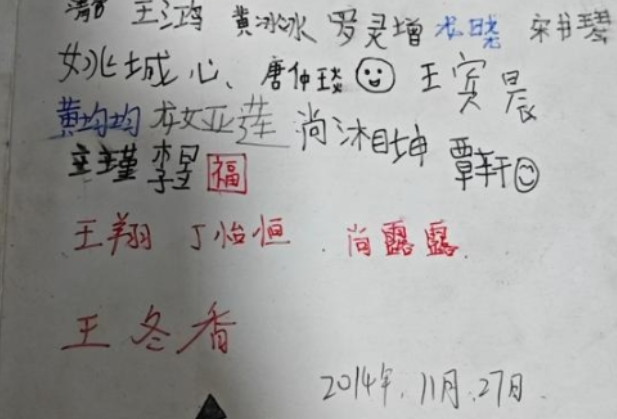 王鸿 黄冰冰 罗灵增 龙晓 宋书琴
姚城心、唐仲琰 王宾晨
黄均均 龙女亚莲 尚沐坤 覃轩
李昱 福
王翔 丁怡恒 尚露露
王冬香
2014年.11月.27日.